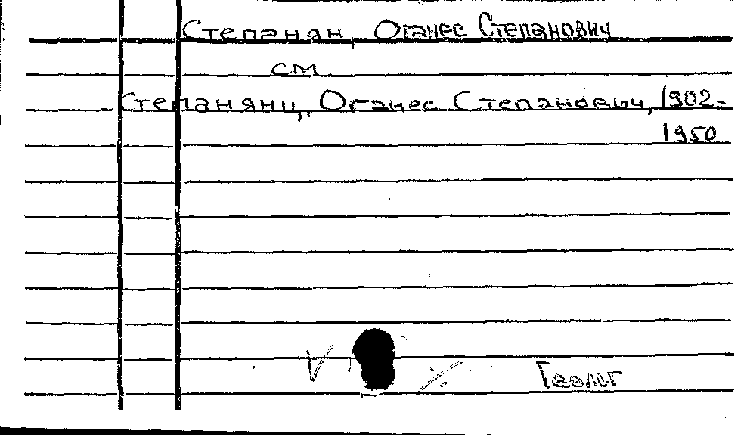 Степанян, Оганес Степанович
см.
Степанянц, Оганес Степанович, 1902-
1950
Геолог